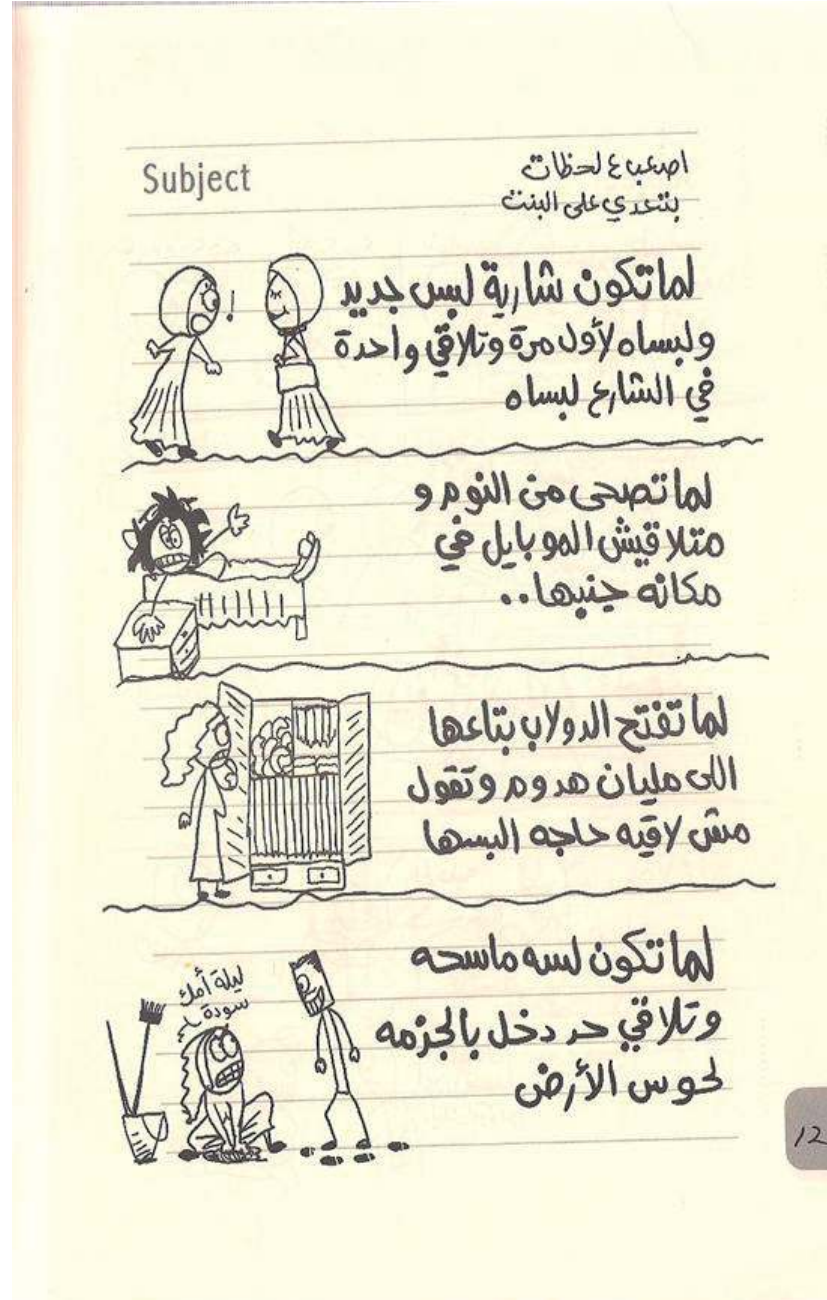 Subject
اصعب ٤ لحظات
بتعدي على البنت
لما تكون شارية لبس جديد
ولبساه لأول مرة وتلاقي واحدة
في الشارع لبساه
!
لما تصحى من النوم و
متلاقيش الموبايل في
مكانه جنبها..
لما تفتح الدولاب بتاعها
اللى مليان هدوم وتقول
مش لاقيه حاجه البسها
لما تكون لسه ماسحه
وتلاقي حد دخل بالجزمه
لحوس الأرض
ليلة أمك
سودة
12